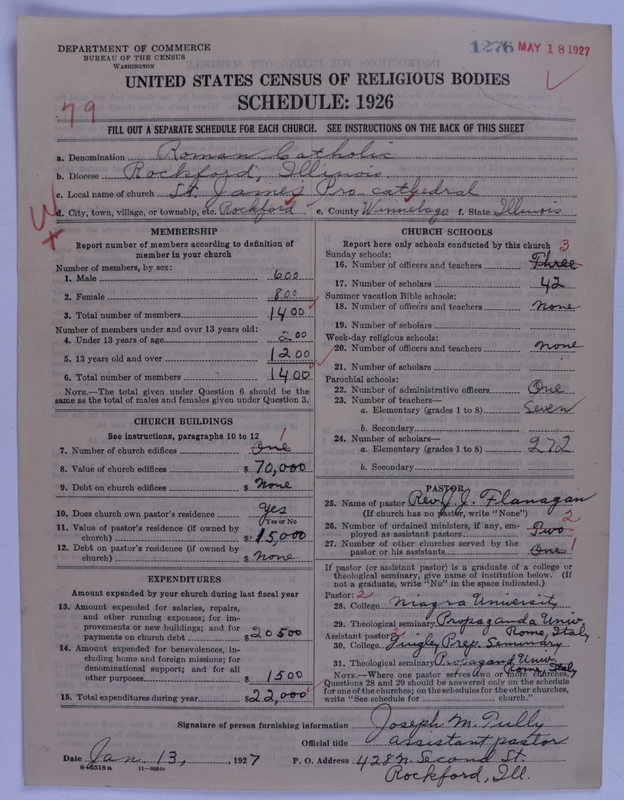 DEPARTMENT OF COMMERCE
BUREAU OF THE CENSUS
WASHINGTON
1276 MAY 18 1927
UNITED STATES CENSUS OF RELIGIOUS BODIES
SCHEDULE: 1926
79
FILL OUT A SEPARATE SCHEDULE FOR EACH CHURCH. SEE INSTRUCTIONS ON THE BACK OF THIS SHEET
a. Denomination Roman Catholic
b. Diocese Rockford, Illinois
c. Local name of church St. James Pro cathedral
d. City, town, village, or township, etc. Rockford e. County Winnebago f. State Illinois
MEMBERSHIP
Report number of members according to definition of
member in your church
Number of members, by sex:
1. Male 600
2. Female 800
3. Total number of members 1400
Number of members under and over 13 years old:
4. Under 13 years of age 200
5. 13 years old and over 1200
6. Total number of members 1400
NOTE.—The total given under Question 6 should be the
same as the total of males and females given under Question 3.
CHURCH BUILDINGS
See instructions, paragraphs 10 to 12
7. Number of church edifices One 1
8. Value of church edifices $ 70,000
9. Debt on church edifices $ None
10. Does church own pastor's residence? Yes
Yes or No
11. Value of pastor's residence (if owned by
church) $ 15,000
12. Debt on pastor's residence (if owned by
church) $ None
EXPENDITURES
Amount expended by your church during last fiscal year
13. Amount expended for salaries, repairs,
and other running expenses; for im-
provements or new buildings; and for
payments on church debt $ 20500
14. Amount expended for benevolences, in-
cluding home and foreign missions; for
denominational support; and for all
other purposes $ 1500
15. Total expenditures during year $ 22,000
CHURCH SCHOOLS
Report here only schools conducted by this church 3
Sunday schools:
16. Number of officers and teachers Three
17. Number of scholars 42
Summer vacation Bible schools:
18. Number of officers and teachers None
19. Number of scholars
Week-day religious schools:
20. Number of officers and teachers None
21. Number of scholars
Parochial schools:
22. Number of administrative officers One
23. Number of teachers—
a. Elementary (grades 1 to 8) Seven
b. Secondary
24. Number of scholars—
a. Elementary (grades 1 to 8) 272
b. Secondary
PASTOR
25. Name of pastor Rev. J. J. Flanagan
(If church has no pastor, write "None")
26. Number of ordained ministers, if any, em-
ployed as assistant pastors Two 2
27. Number of other churches served by the
pastor or his assistants One 1
If pastor (or assistant pastor) is a graduate of a college or
theological seminary, give name of institution below. (If
not a graduate, write "No" in the space indicated.)
Pastor: 2
28. College Niagra University
29. Theological seminary Propaganda Univ.
Rome, Italy
Assistant pastor: 2
30. College Quigley Prep. Seminary
31. Theological seminary Propagand Univ.
Rome, Italy
NOTE.—Where one pastor serves two or more churches,
Questions 28 and 29 should be answered only on the schedule
for one of the churches; on the schedules for the other churches,
write "See schedule for church."
Signature of person furnishing information Joseph M. Tully
Official title assistant pastor
Date Jan. 13, , 1927 P. O. Address 428 N. Second St.
Rockford, Ill.